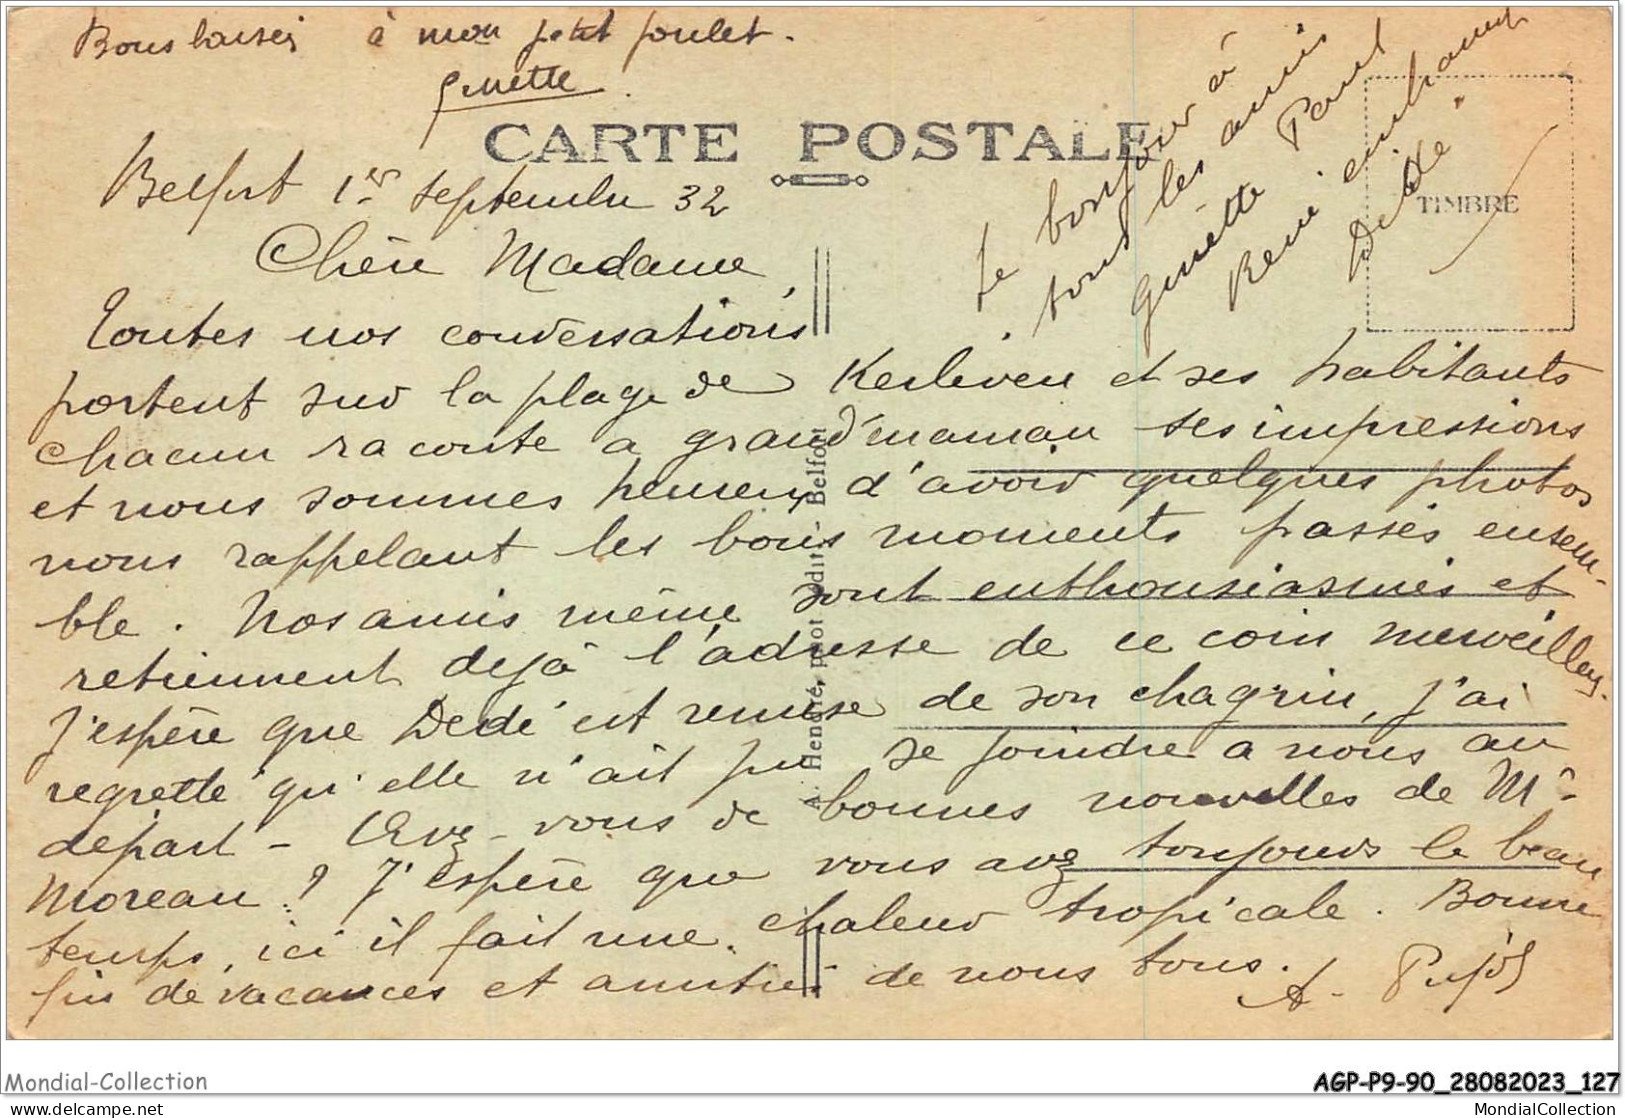 Bons baisers à mon petit poulet.
Ginette
CARTE POSTALE
TIMBRE
Le bonjour à
tous les amis
Ginette Paul
René
Dédée
Belfort 1er septembre 32
Chère Madame,
Toutes nos conversations
portent sur la plage de Kerleven et ses habitants
chacun raconte a grand'maman ses impressions
et nous sommes heureux d'avoir quelques photos
nous rappelant les bons moments passés ensem-
ble. Nos amis même sont enthousiasmés et
retiennent dejà l'adresse de ce coin merveilleux.
J'espère que Dedé est remise de son chagrin, j'ai
regretté qu'elle n'ait pu se joindre a nous au
départ - Avez-vous de bonnes nouvelles de Mr
Moreau ? J'espère que vous avez toujours le beau
temps, ici il fait une chaleur tropicale. Bonne
fin de vacances et amitiés de nous tous.
A. Pujol
A. Henrité, phot édit. Belfort
Mondial-Collection
AGP-P9-90_28082023_127
www.mondialcollection.com
MondialCollection.com